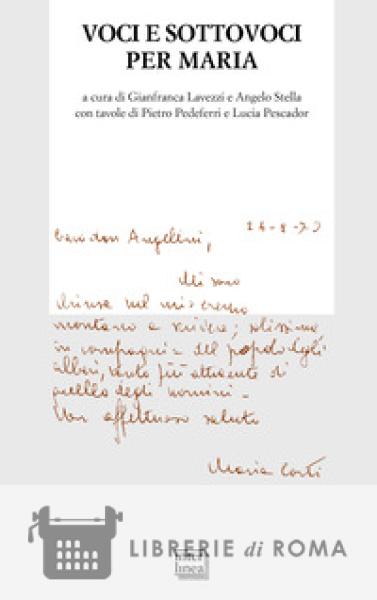 VOCI E SOTTOVOCI
PER MARIA
a cura di Gianfranca Lavezzi e Angelo Stella
con tavole di Pietro Pedeferri e Lucia Pescador
26-8-73
Caro don Angelini,
Mi sono
chiusa nel mio eremo
montano a scrivere; solissima
in compagnia del popolo degli
alberi, tanto più attraente di
quello degli uomini.
Un affettuoso saluto
Maria Corti
LIBRERIE di ROMA
inter
linea